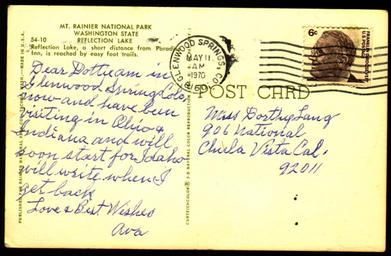 MT. RAINIER NATIONAL PARK
WASHINGTON STATE
54-10 REFLECTION LAKE
Reflection Lake, a short distance from Paradise
Inn, is reached by easy foot trails.
Dear Dott am in
Glenwood Springs Colo
now and have been
visiting in Ohio &
Indiana and will
soon start for Idaho
will write when I
get back
Love & Best Wishes
Ava
GLENWOOD SPRINGS, CO
MAY 11
AM
1970
6¢
POST CARD
Miss Dorthy Lang
906 National
Chula Vista Cal.
92011